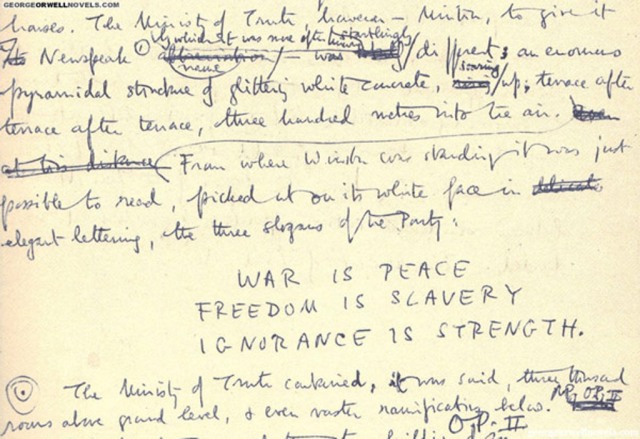 GEORGEORWELLNOVELS.COM
houses. The Ministry of Truth, however — Minitrue, to give it
by which it was more often startlingly
Newspeak — was different; an enormous
name
pyramidal structure of glittering white concrete, soaring up, terrace after
terrace after terrace, three hundred metres into the air.
at this distance From where Winston was standing it was just
possible to read, picked out on its white face in delicate
elegant lettering, the three slogans of the Party:
WAR IS PEACE
FREEDOM IS SLAVERY
IGNORANCE IS STRENGTH.
The Ministry of Truth contained, it was said, three thousand
rooms above ground level, & even vaster ramifications below.
O.P. II